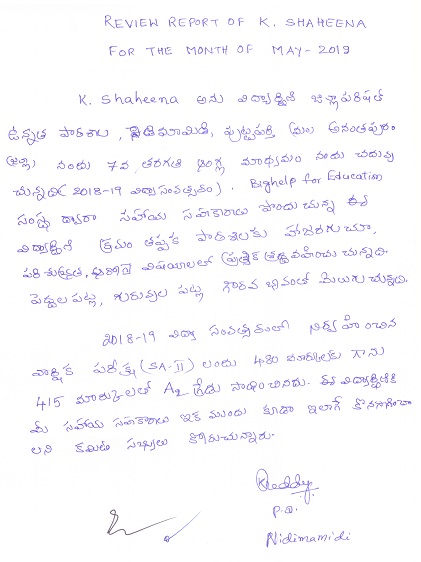 REVIEW REPORT OF K. SHAHEENA
FOR THE MONTH OF MAY - 2019
K. Shaheena అను విద్యార్థిని జిల్లాపరిషత్
ఉన్నత పాఠశాల, నిడిమామిడి, పుట్టపర్తి (మం) అనంతపురం
(జిల్లా) నందు 7వ తరగతి ఆంగ్ల మాధ్యమం నందు చదువు
చున్నది (2018-19 విద్యాసంవత్సరం). Bighelp for Education
సంస్థ ద్వారా సహాయ సహకారాలు పొందుచున్న ఈ
విద్యార్థిని క్రమం తప్పక పాఠశాలకు హాజరగుచూ,
పరిశుభ్రత, విషయాలలో ప్రత్యేక శ్రద్ధ వహించు చున్నది.
పెద్దల పట్ల, గురువుల పట్ల గౌరవ భావంతో మెలుగు చున్నది.
2018-19 విద్యా సంవత్సరంలో నిర్వహించిన
వార్షిక పరీక్ష (SA-II) లందు 480 మార్కులకు గాను
415 మార్కులతో A2 గ్రేడు సాధించినది. ఈ విద్యార్థినికి
మీ సహాయ సహకారాలు ఇక ముందు కూడా ఇలాగే కొనసాగించా
లని కమిటీ సభ్యులు కోరుచున్నారు.
KReddy
P.D.
Nidimamidi